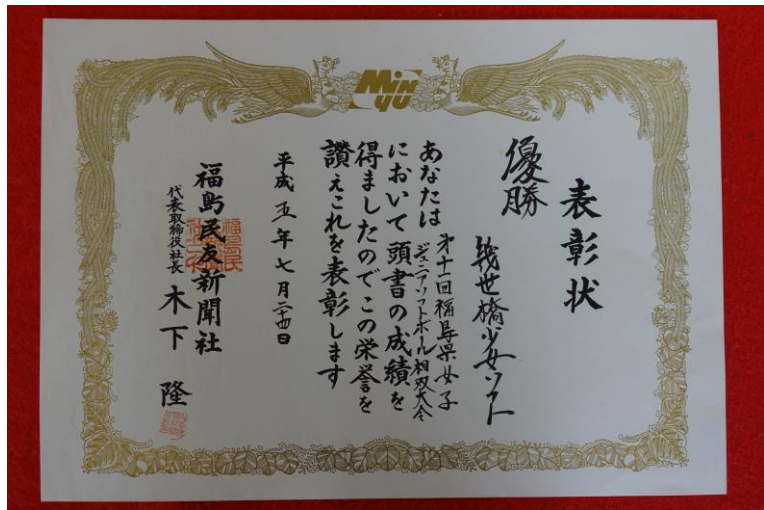 MiNYU
表彰状
優勝
幾世橋少女ソフト
あなたは
第十一回福島県女子
ジュニアソフトボール相双大会
において頭書の成績を
得ましたのでこの栄誉を
讃えこれを表彰します
平成五年七月二十四日
福島民友新聞社
代表取締役社長 木下 隆